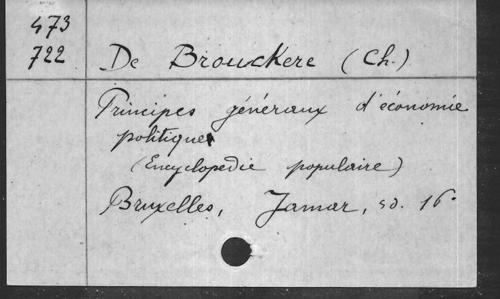 473
722
De Brouckere (Ch.)
Principes généraux d'économie
politique
(Encyclopedie populaire)
Bruxelles, Jamar, sd. 16°